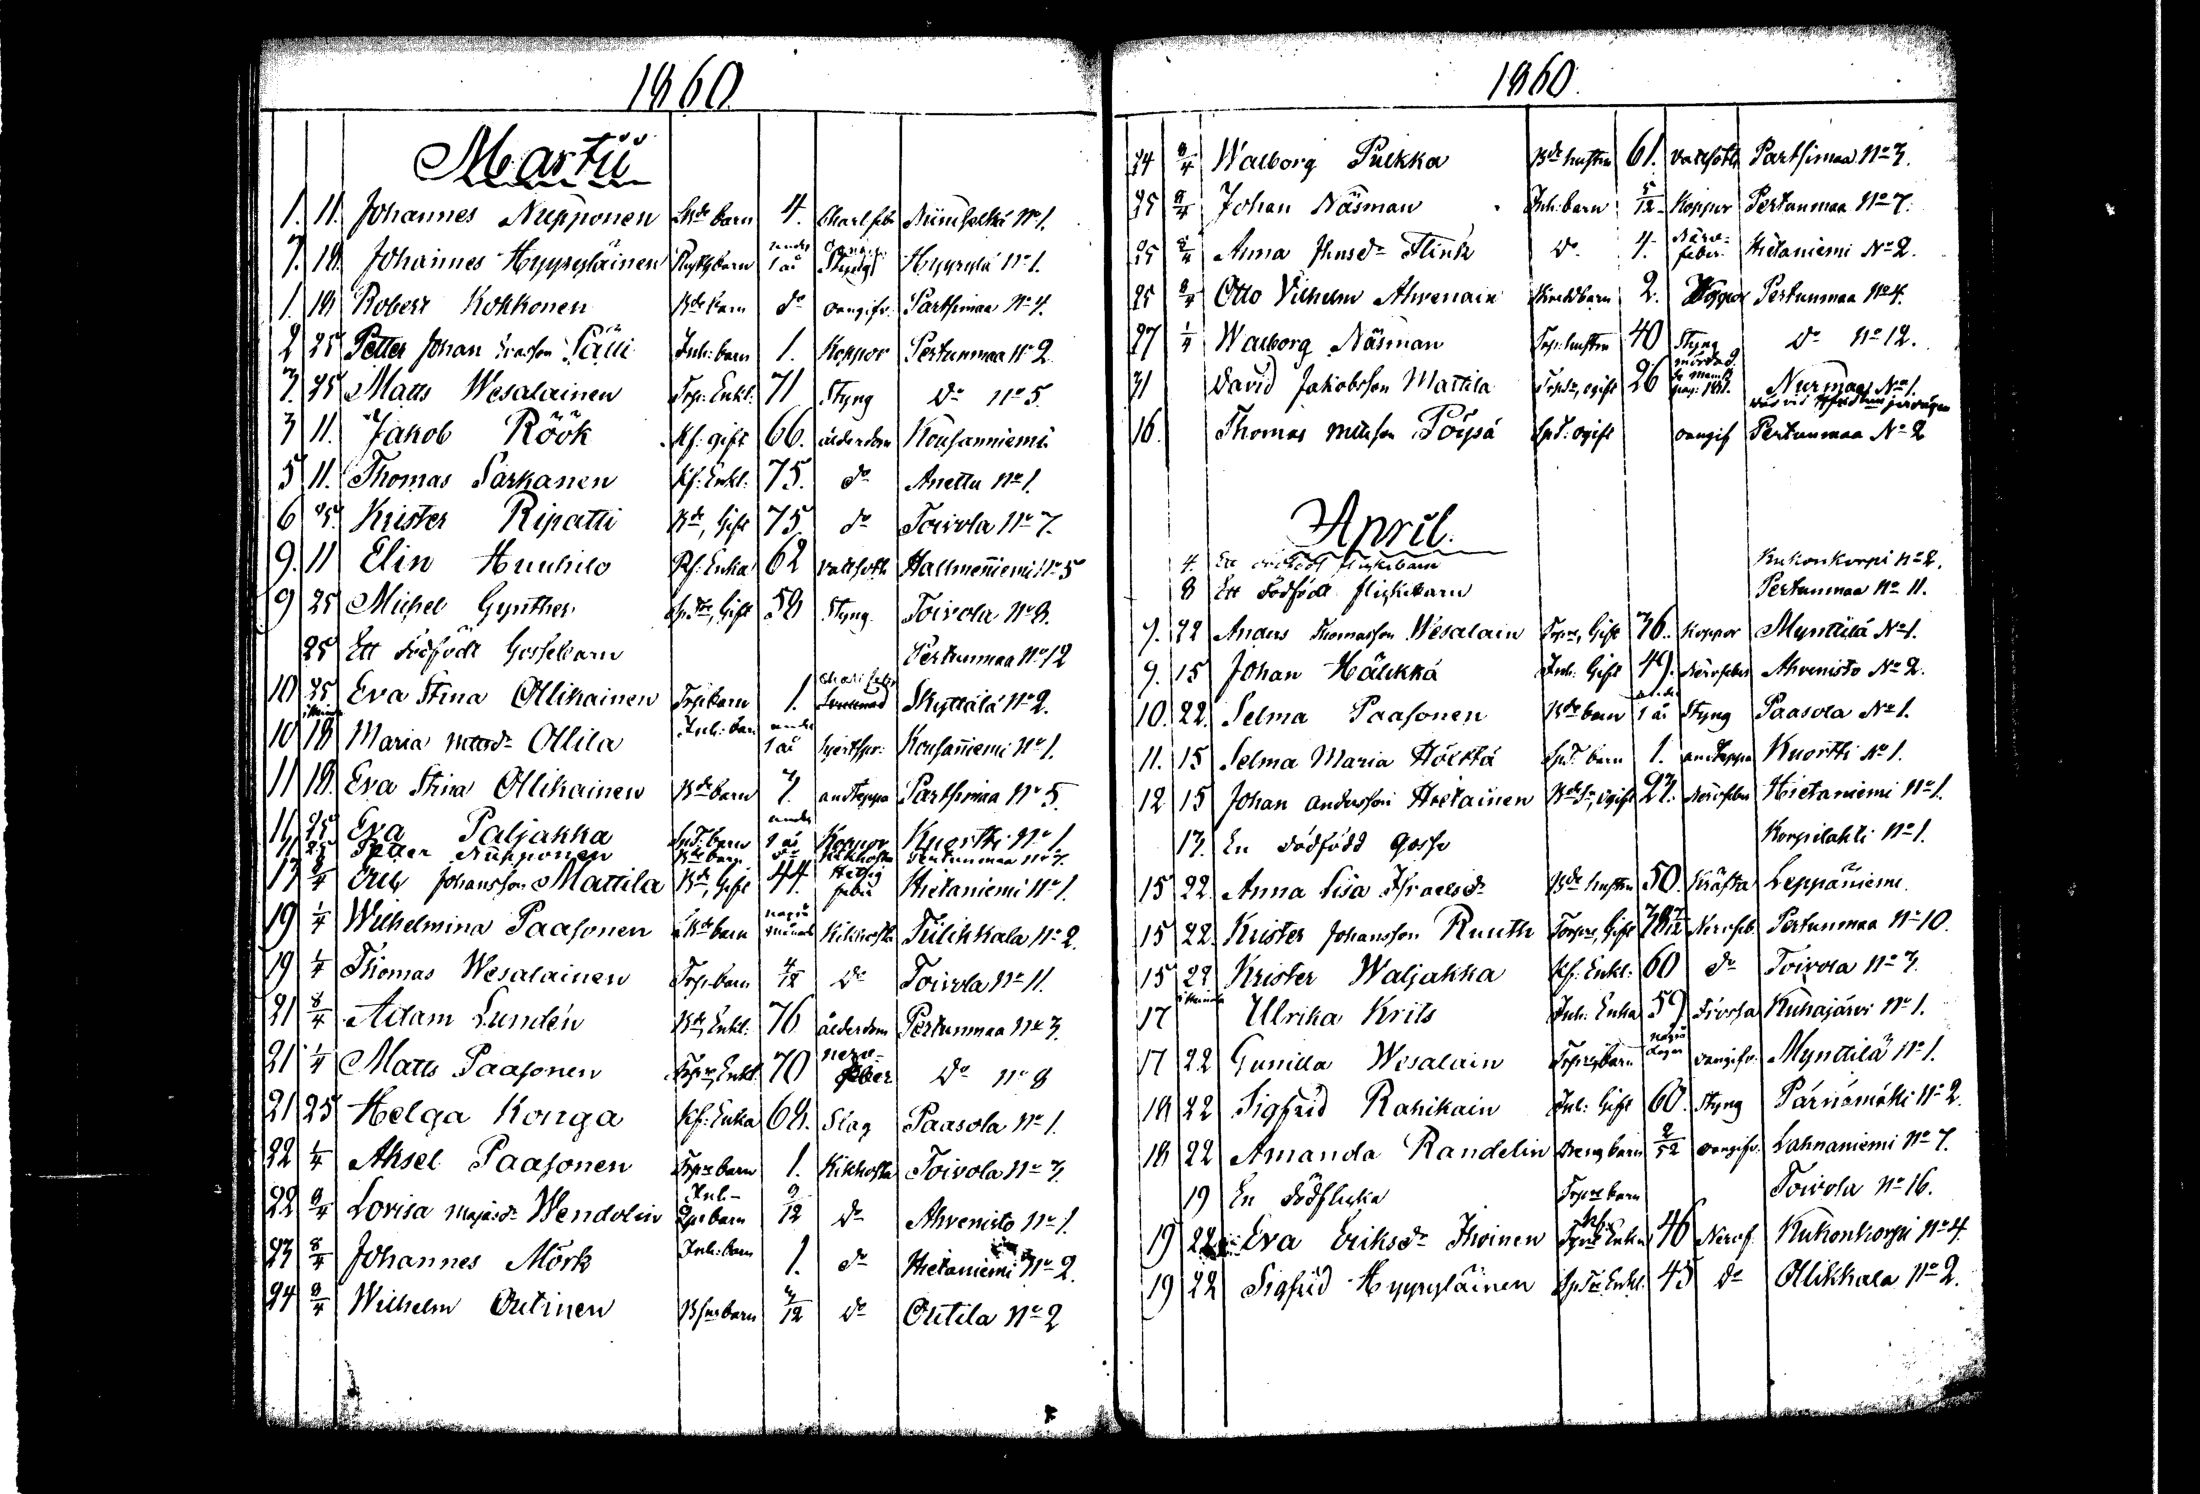 1860
Martii
1. 11. Johannes Nupponen barn 4. Nr 1.
7. 18. Johannes Hyyryläinen barn under 1 år Styng Hyyrylä Nr 1.
1. 18 Robert Kokkonen Bde barn do oangifv. Partsimaa No 4.
2 25 Petter Johan Pälli Inh: barn 1. Koppor Pertunmaa No 2
3. 25 Matts Wesalainen Torp: Enkl: 71 Styng do No 5.
3 11. Jakob Röök Kf: gift 66. ålderdom Kousanniemi
5 11. Thomas Parkanen Kf: Enkl: 75. do Anettu No 1.
6 25. Krister Ripatti Bde, Gift 75. do Toivola No 7.
9. 11 Elin Huuhilo Enka 62 vattsoth Hallmenniemi No 5
9 25 Michel Gynther Gift 58 Styng Toivola No 8.
25 Ett dödfödt Gossebarn Pertunmaa No 12
10 25 Eva Stina Ollikainen Torp barn 1. Skyttälä No 2.
10 18 Maria Ollila Inh: barn under 1 år Kousaniemi No 1.
11 18. Eva Stina Ollikainen Bde barn 7. andtäppa Partsimaa No 5.
11 25 Eva Paljakka barn under 1 år Koppor Kuortti No 1.
11 25 Petter Nupponen Bde barn do Kikhosta Pertunmaa No 7.
13 8/4 Erik Johansson Mattila Bde, Gift 44. Hetsig feber Hietaniemi No 1.
19 1/4 Wilhelmina Paasonen Bde barn några månad Kikhosta Tülikkala No 2.
19 1/4 Thomas Wesalainen Torp. barn 4/12 do Toivola No 11.
21 8/4 Adam Lundén Bde, Enkl: 76 ålderdom Pertunmaa No 3.
21 1/4 Matts Paasonen Enkl. 70 nerv-feber do No 8
21 25 Helga Konga Kf: Enka 68. Slag Paasola No 1.
22 1/4 Aksel Paasonen barn 1. Kikhosta Toivola No 3.
22 9/4 Lovisa Majasdr Wendolin Inh- barn 9/12 do Ahvenisto No 1.
23 8/4 Johannes Mörk Inh: barn 1. do Hietaniemi No 2.
24 9/4 Wilhelm Outinen barn 3/12 do Outila No 2
1860.
24 8/4 Walborg Pulkka Bde hustru 61. vattsoth Partsimaa No 3.
25 8/4 Johan Näsman Inh: barn 5/12 Koppor Pertunmaa No 7.
25 8/4 Anna Flink do 4. Nerv-feber Hietaniemi No 2.
25 8/4 Otto Vilhelm Ahvenain barn 2. Koppor Pertunmaa No 4.
27 1/4 Walborg Näsman Torp: hustru 40 Styng do No 12.
31 David Jakobsson Mattila ogift 26 mördad Nurmaa No 1.
16. Thomas Pöysä ogift oangif Pertunmaa No 2
April.
4. Ett dödfödt flickebarn Kukonkorpi No 2.
8 Ett dödfödt flickebarn Pertunmaa No 11.
7. 22 Anders Thomasson Wesalain Gift 76. Koppor Mynttilä No 1.
9. 15 Johan Häkkä Inh: Gift 49. Nervfeber Ahvenisto No 2.
10. 22. Selma Paasonen Bde barn under 1 år Styng Paasola No 1.
11. 15 Selma Maria Hölttä barn 1. andtäppa Kuortti No 1.
12 15 Johan Andersson Hietainen ogift 27. Nervfeber Hietaniemi No 1.
13. En dödfödd gosse Korpilahti No 1.
15 22. Anna Lisa Israelsdr Bde hustru 50. Kräfta Leppäniemi.
15 22. Krister Johansson Ruuth Gift Nervfeb. Pertunmaa No 10.
15 22 Krister Waljakka Kf: Enkl: 60 do Toivola No 3.
17 Ulrika Krils Inh: Enka 59 Kuhajärvi No 1.
17 22 Gunilla Wesalain barn några dagar oangifv. Mynttilä No 1.
18 22 Sigfrid Rahikain Inh: Gift 60. Styng Pärnämäki No 2.
18 22 Amanda Randelin Dreng barn 2/52 oangifv. Lahnaniemi No 7.
19 En dödflicka barn Toivola No 16.
19 22 Eva Eriksdr Ihoinen Enka 46 Nervf. Kukonkorpi No 4.
19 22 Sigfrid Hyyryläinen Enkl. 45 do Ollikkala No 2.